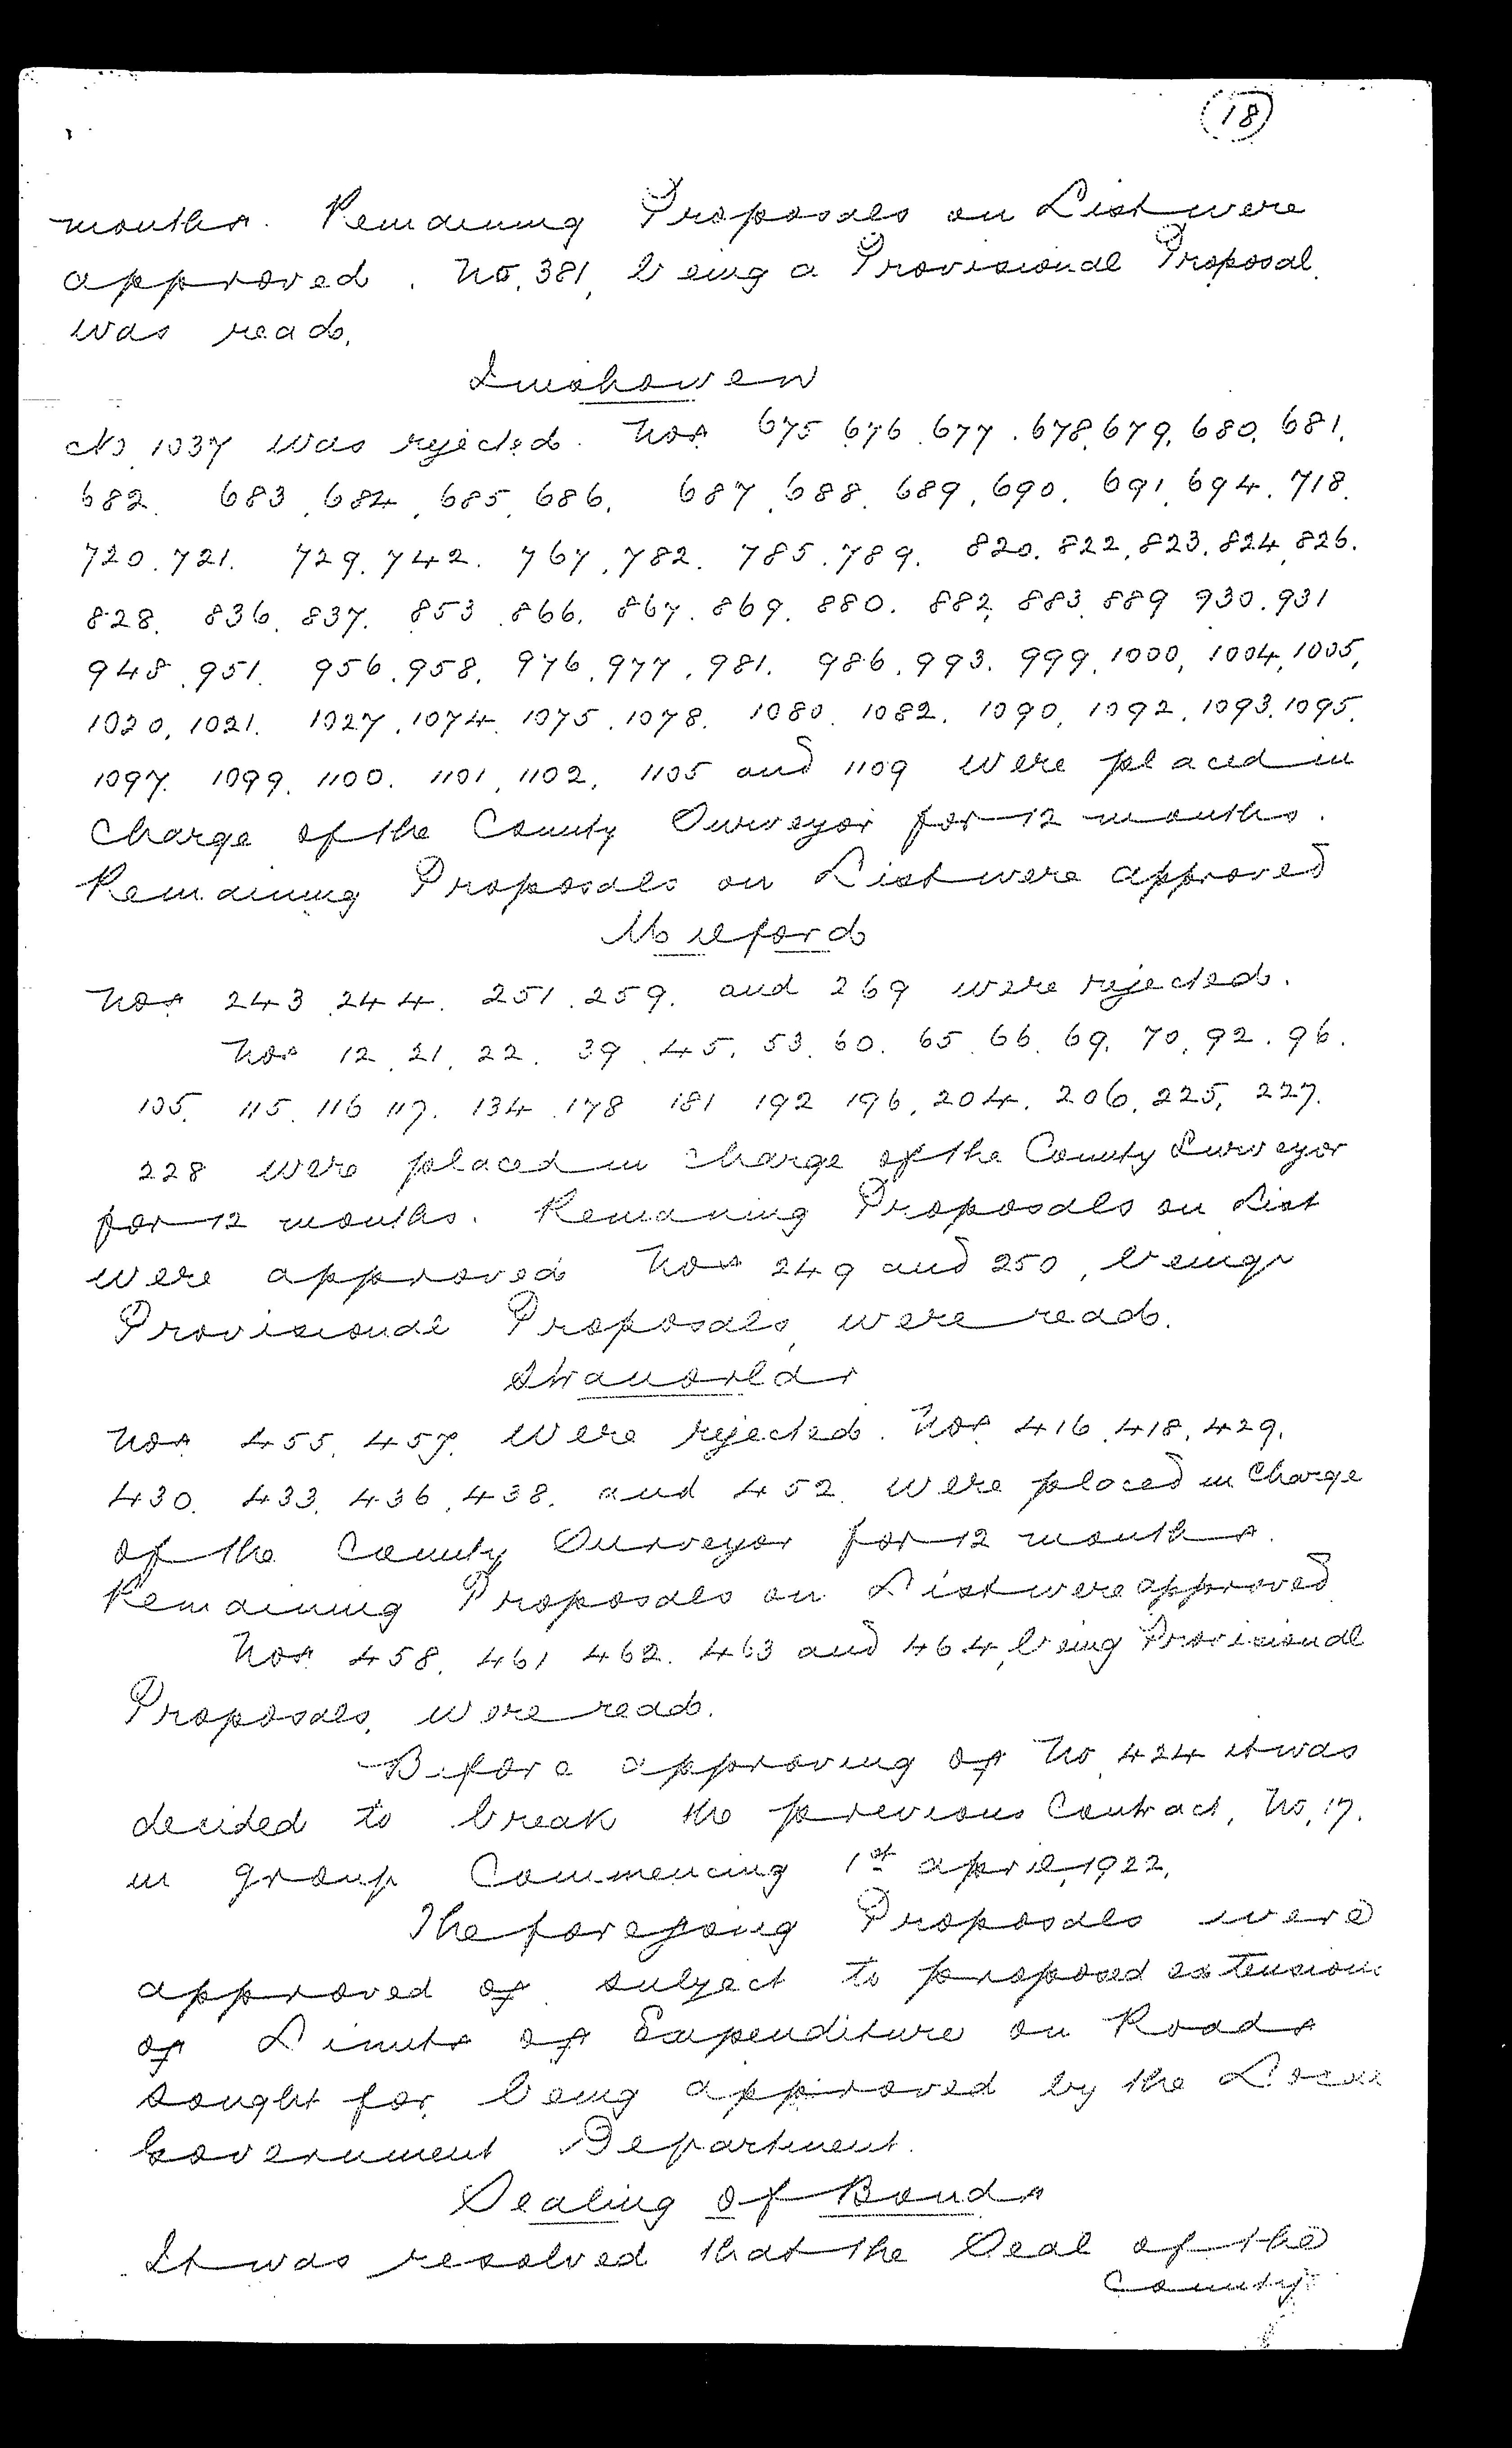 18
months. Remaining Proposals on List were
approved. No. 381, being a Provisional Proposal
was read.
Inishowen
No. 1037 was rejected. Nos 675. 676. 677. 678. 679. 680. 681.
682. 683. 684. 685. 686. 687. 688. 689. 690. 691. 694. 718.
720. 721. 729. 742. 767. 782. 785. 789. 820. 822. 823. 824. 826.
828. 836. 837. 853. 866. 867. 869. 880. 882. 883. 889 930. 931
948. 951. 956. 958. 976. 977. 981. 986. 993. 999. 1000, 1004, 1005,
1020, 1021. 1027. 1074. 1075. 1078. 1080. 1082. 1090. 1092. 1093. 1095.
1097. 1099. 1100. 1101, 1102. 1105 and 1109 were placed in
Charge of the County Surveyor for 12 months.
Remaining Proposals on List were approved
Milford
Nos 243. 244. 251. 259. and 269 were rejected.
Nos 12. 21. 22. 39. 45. 53. 60. 65. 66. 69. 70. 92. 96.
105. 115. 116 117. 134. 178 181 192 196. 204. 206. 225, 227.
228 were placed in charge of the County Surveyor
for 12 months. Remaining Proposals on List
were approved Nos 249 and 250, being
Provisional Proposals, were read.
Stranorlar
Nos 455. 457. were rejected. Nos 416. 418. 429.
430. 433. 436. 438. and 452. were placed in Charge
of the County Surveyor for 12 months.
Remaining Proposals on List were approved
Nos 458. 461 462. 463 and 464, being Provisional
Proposals, were read.
Before approving of No. 424 it was
decided to break the previous Contract, No. 17.
in group Commencing 1st April, 1922.
The foregoing Proposals were
approved of subject to proposed extension
of Limits of Expenditure on Roads
sought for being approved by the Local
Government Department.
Sealing of Bonds
It was resolved that the Seal of the
County